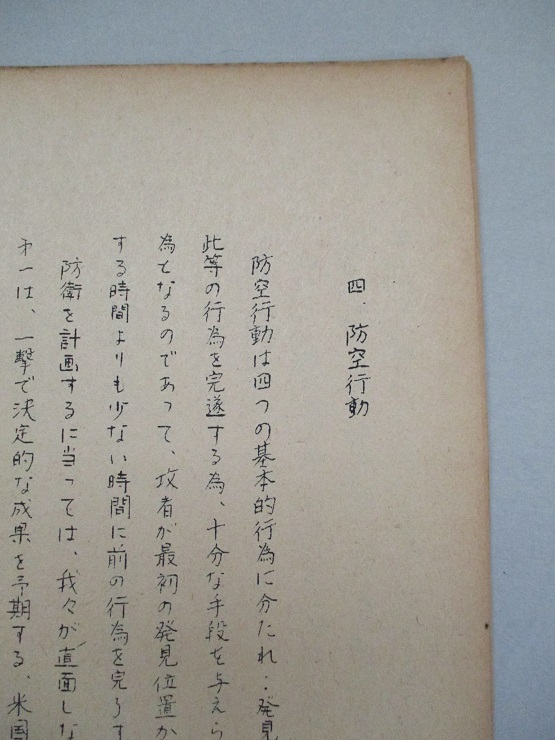 四．防空行動
防空行動は四つの基本的行為に分たれ‥発見
此等の行為を完遂する為、十分な手段を与えら
為となるのであって、攻者が最初の発見位置か
する時間よりも少ない時間に前の行為を完うす
防衛を計画するに当っては、我々が直面しな
才一は、一撃で決定的な成果を予期する、米国